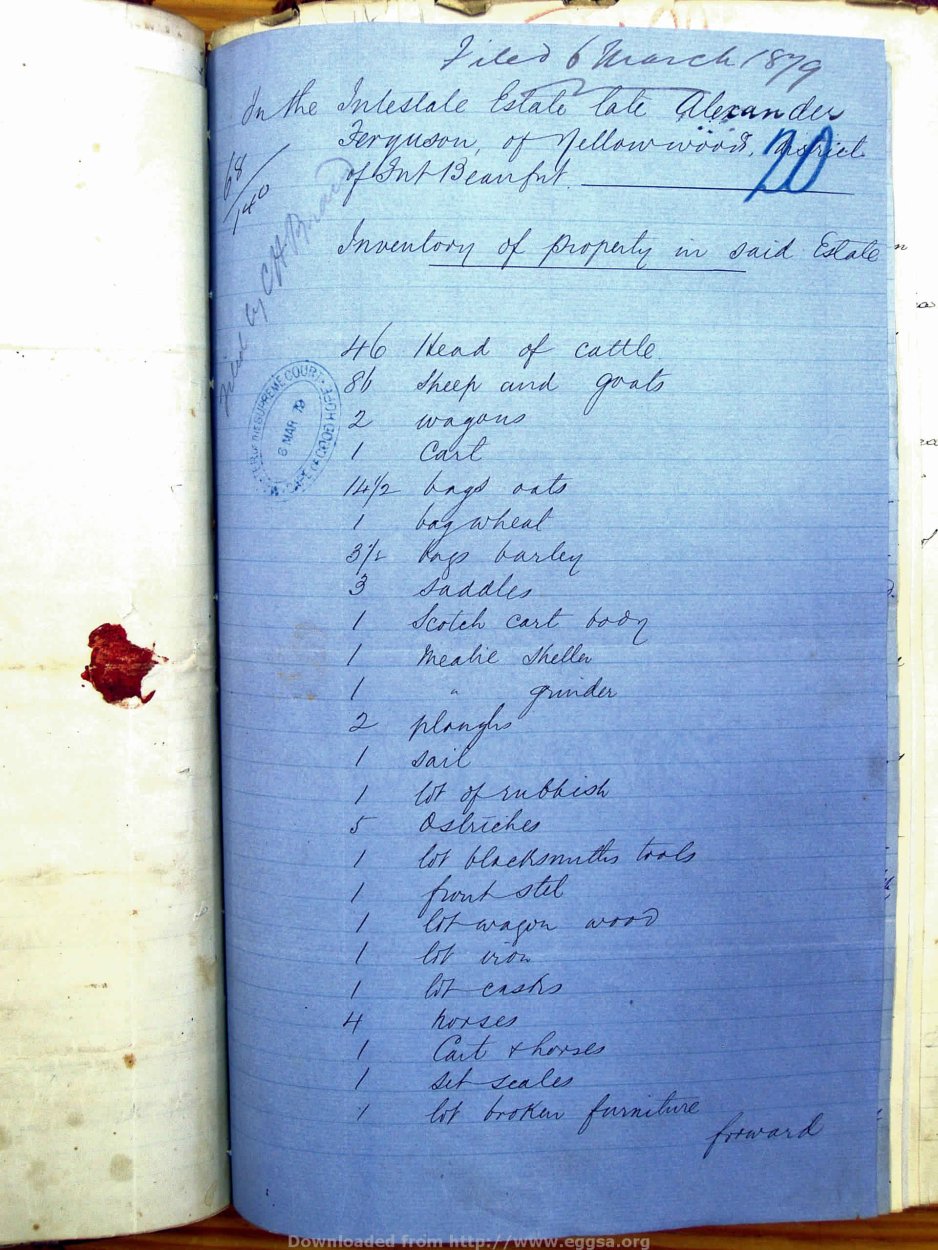 Filed 6 March 1879
In the Intestate Estate late Alexander
Ferguson, of Yellowwood, district
20
of Fort Beaufort.
68/140
filed by C H
Inventory of Property in said Estate
46 Head of cattle
86 sheep and goats
2 wagons
1 Cart
14 1/2 bags oats
1 bag wheat
3 1/2 bags barley
3 saddles
1 Scotch cart body
1 Mealie Sheller
1 " grinder
2 ploughs
1 sail
1 lot of rubbish
5 Ostriches
1 lot blacksmiths tools
1 front stel
1 lot wagon wood
1 lot iron
1 lot casks
4 horses
1 Cart & horses
1 set scales
1 lot broken furniture
forward
SUPREME COURT
CAPE OF GOOD HOPE
MAR 79
Downloaded from http://www.eggsa.org